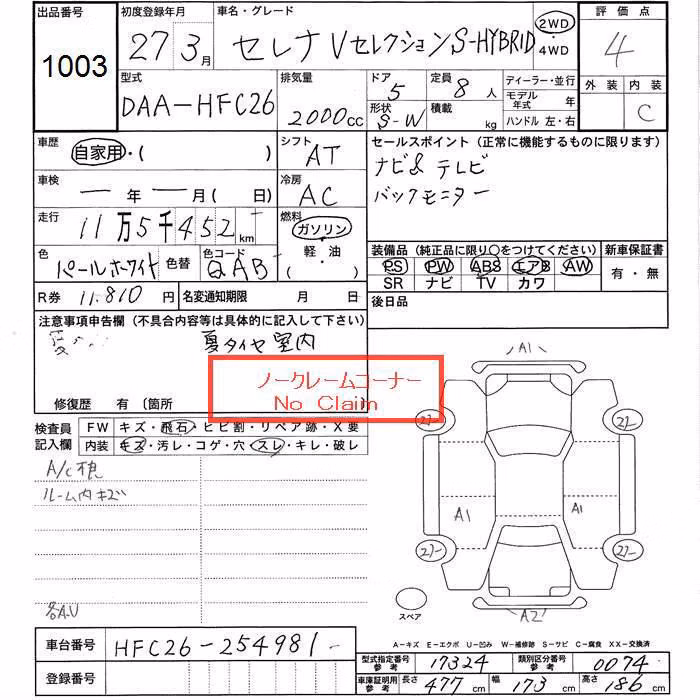 出品番号 初度登録年月 車名・グレード 評価点
1003 27 3月 セレナ Vセレクション S-HYBRID 2WD・4WD 4
型式 排気量 ドア 定員 ディーラー・並行 外装 内装
DAA-HFC26 2000cc 5 8人 モデル年式 年 C
形状 積載 ハンドル 左・右
S-W kg
車歴 シフト セールスポイント (正常に機能するものに限ります)
自家用・( ) AT ナビ& テレビ
車検 冷房 バックモニター
― 年 ― 月 ( 日) AC
走行 燃料
11万5千452km ガソリン
軽・油
( )
色 色コード 装備品 (純正品に限り○をつけてください) 新車保証書
パールホワイト 色替 QAB PS PW ABS エアB AW 有・無
SR ナビ TV カワ
R券 11.810円 名変通知期限 月 日 後日品
注意事項申告欄 (不具合内容等は具体的に記入して下さい)
夏タイヤ 室内
ノークレームコーナー
No Claim
修復歴 有 〔箇所
検査員記入欄 FW キズ・飛石・ヒビ割・リペア跡・X要
内装 キズ・汚レ・コゲ・穴・スレ・キレ・破レ
ルーム内キズ
A1
27- 27-
A1 A1
27- 27-
スペア A2
A-キズ E-エクボ U-凹み W-補修跡 S-サビ C-腐食 XX-交換済
車台番号 HFC26-254981-
登録番号
型式指定番号参考 17324 類別区分番号参考 0074
車庫証明用参考 長さ 477cm 幅 173cm 高さ 186cm